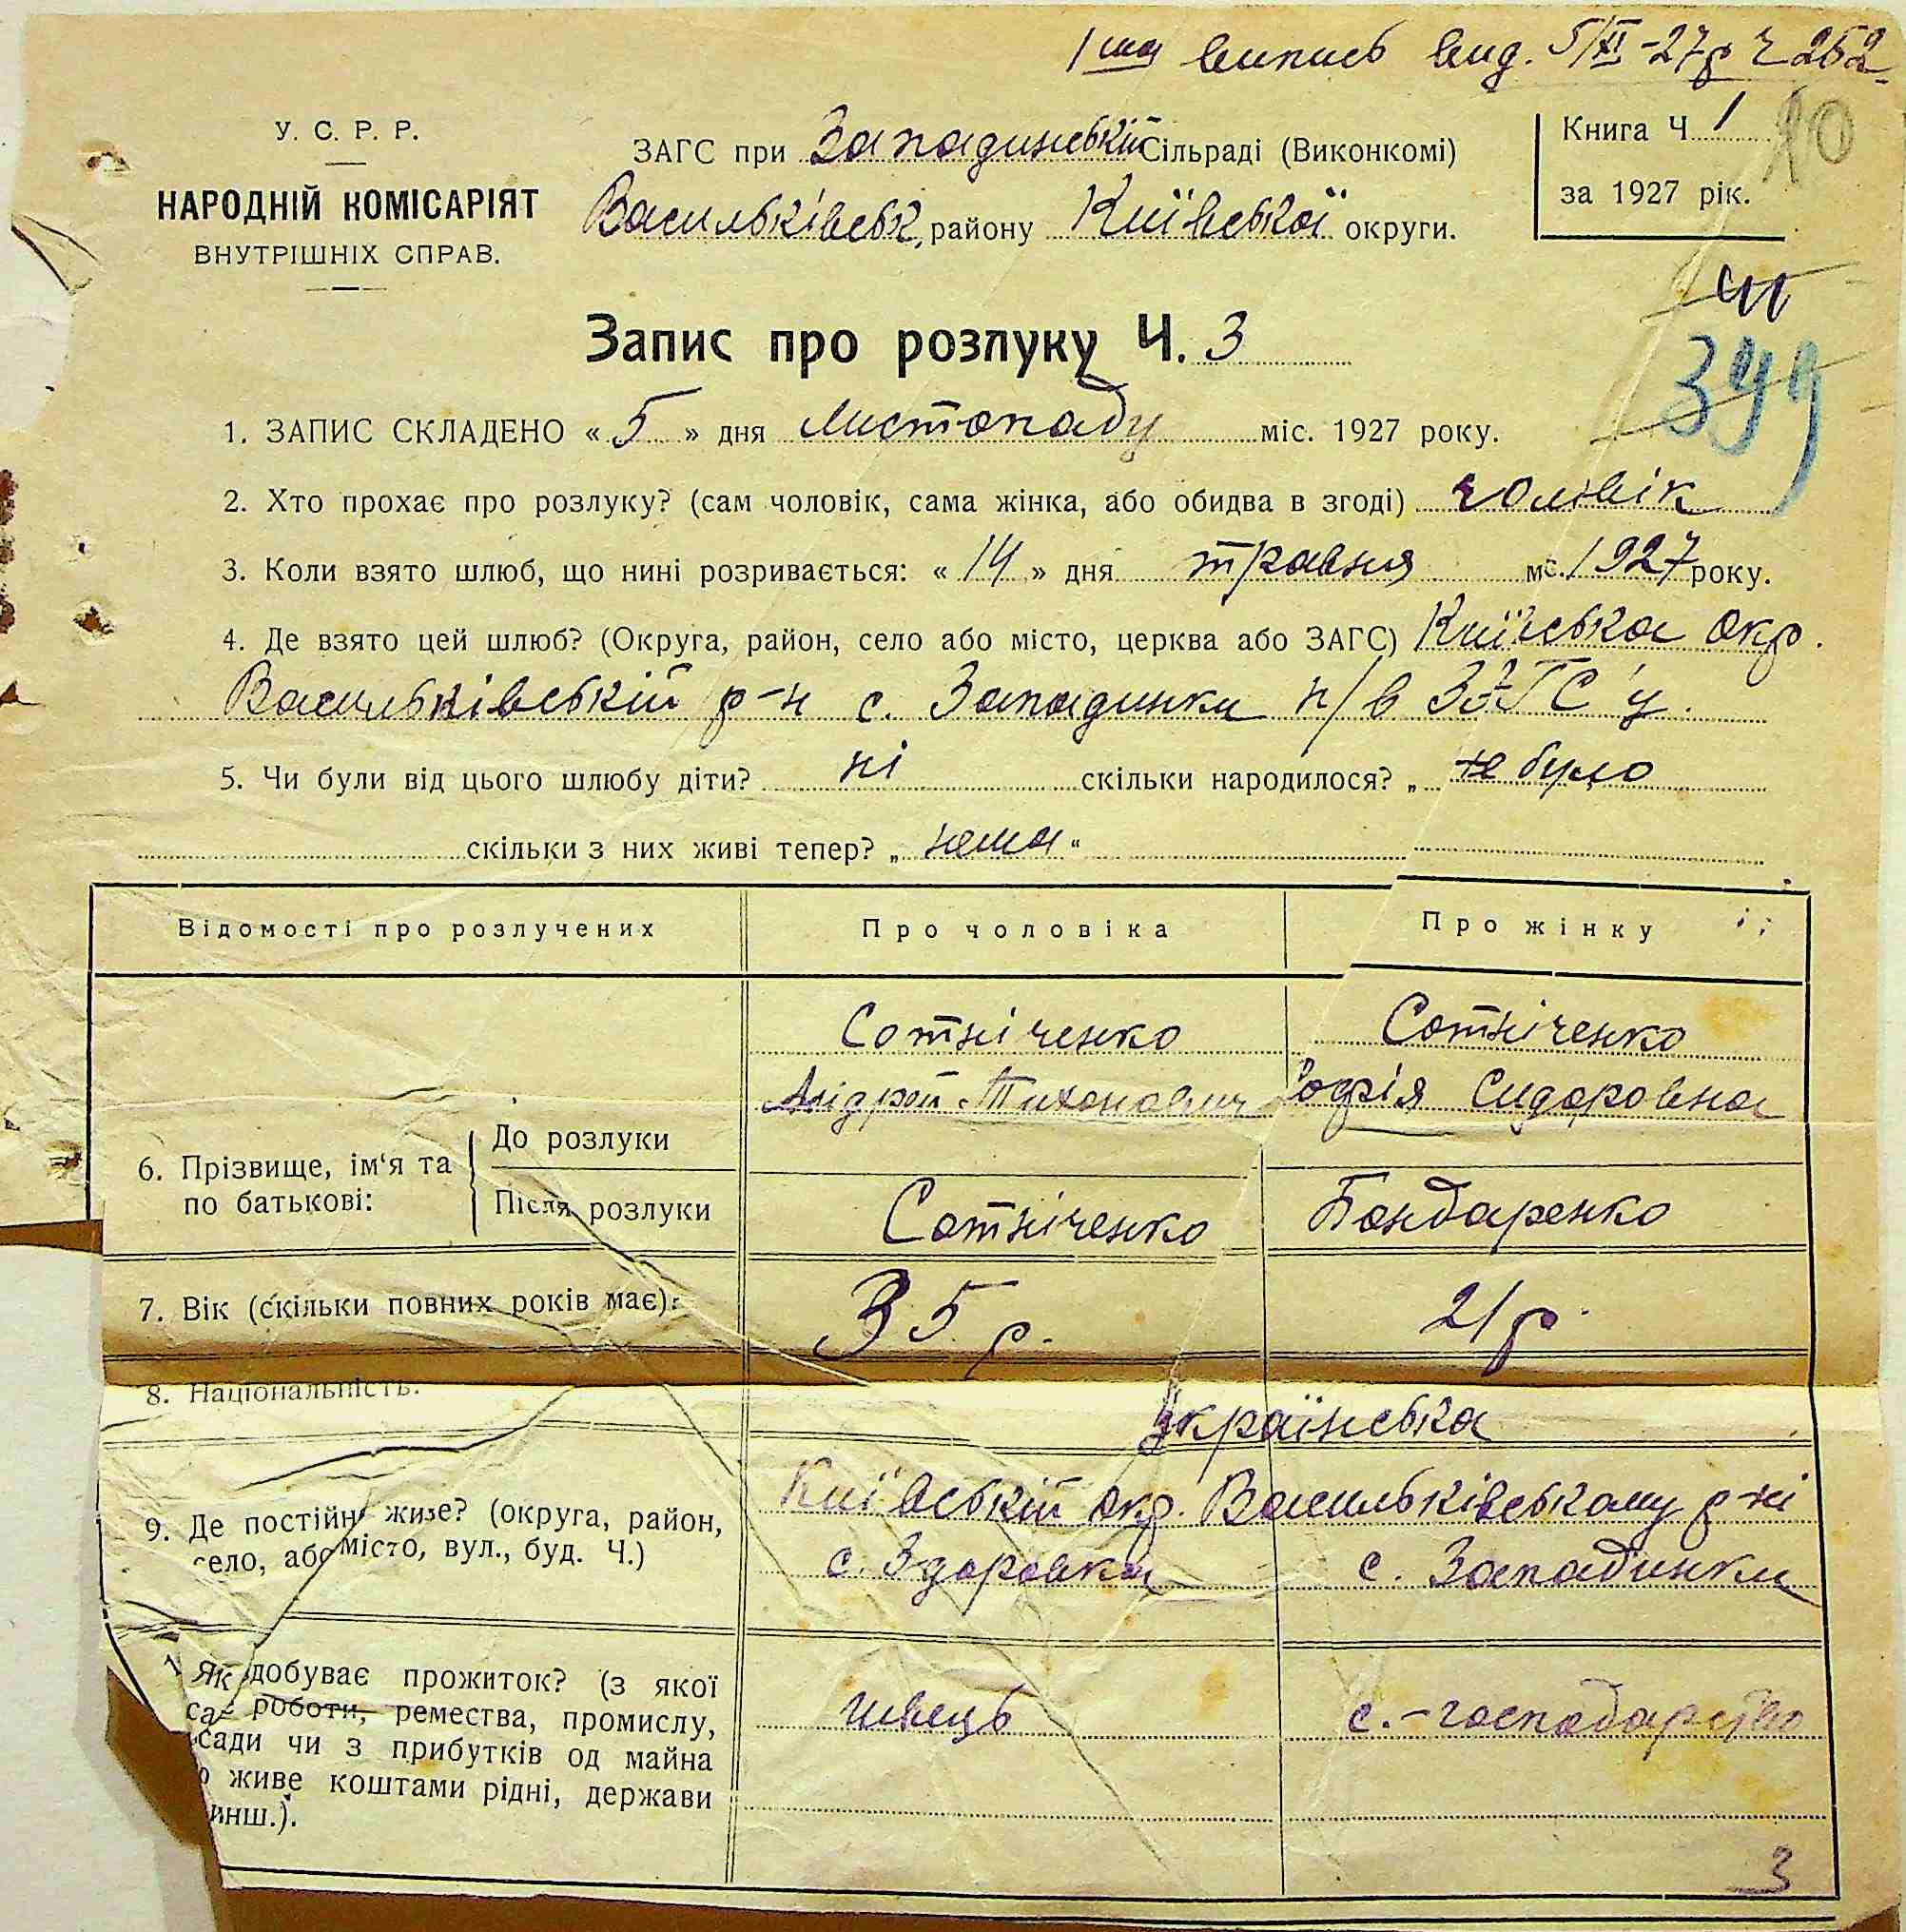 1ша випись вид. 5/XI-27р Ч 252
У. С. Р. Р.
НАРОДНІЙ КОМІСАРІЯТ
ВНУТРІШНІХ СПРАВ.
ЗАГС при Западинській Сільраді (Виконкомі)
Васильківськ. району Київської округи.
Книга Ч 1
за 1927 рік.
Запис про розлуку Ч. 3
1. ЗАПИС СКЛАДЕНО «5» дня листопаду міс. 1927 року.
2. Хто прохає про розлуку? (сам чоловік, сама жінка, або обидва в згоді) чоловік
3. Коли взято шлюб, що нині розривається: «14» дня травня м. 1927 року.
4. Де взято цей шлюб? (Округа, район, село або місто, церква або ЗАГС) Київська окр.
Васильківській р-н с. Западинки п/в ЗАГС'у.
5. Чи були від цього шлюбу діти? ні скільки народилося? „ не було
скільки з них живі тепер? „ нема “
Відомості про розлучених Про чоловіка Про жінку
Сотніченко Сотніченко
Андрей Тихонович Софія Сидоровна
6. Прізвище, ім‘я та по батькові:
До розлуки
Після розлуки Сотніченко Бондаренко
7. Вік (скільки повних років має): 35 р. 21 р.
8. Національність. Українська
9. Де постійно живе? (округа, район, село, або місто, вул., буд. Ч.)
Київській окр. Васильківському р-ні
с. Здоровка с. Западинки
Як добуває прожиток? (з якої
роботи, ремества, промислу,
сади чи з прибутків од майна
живе коштами рідні, держави
инш.).
швець с.-господарство
3